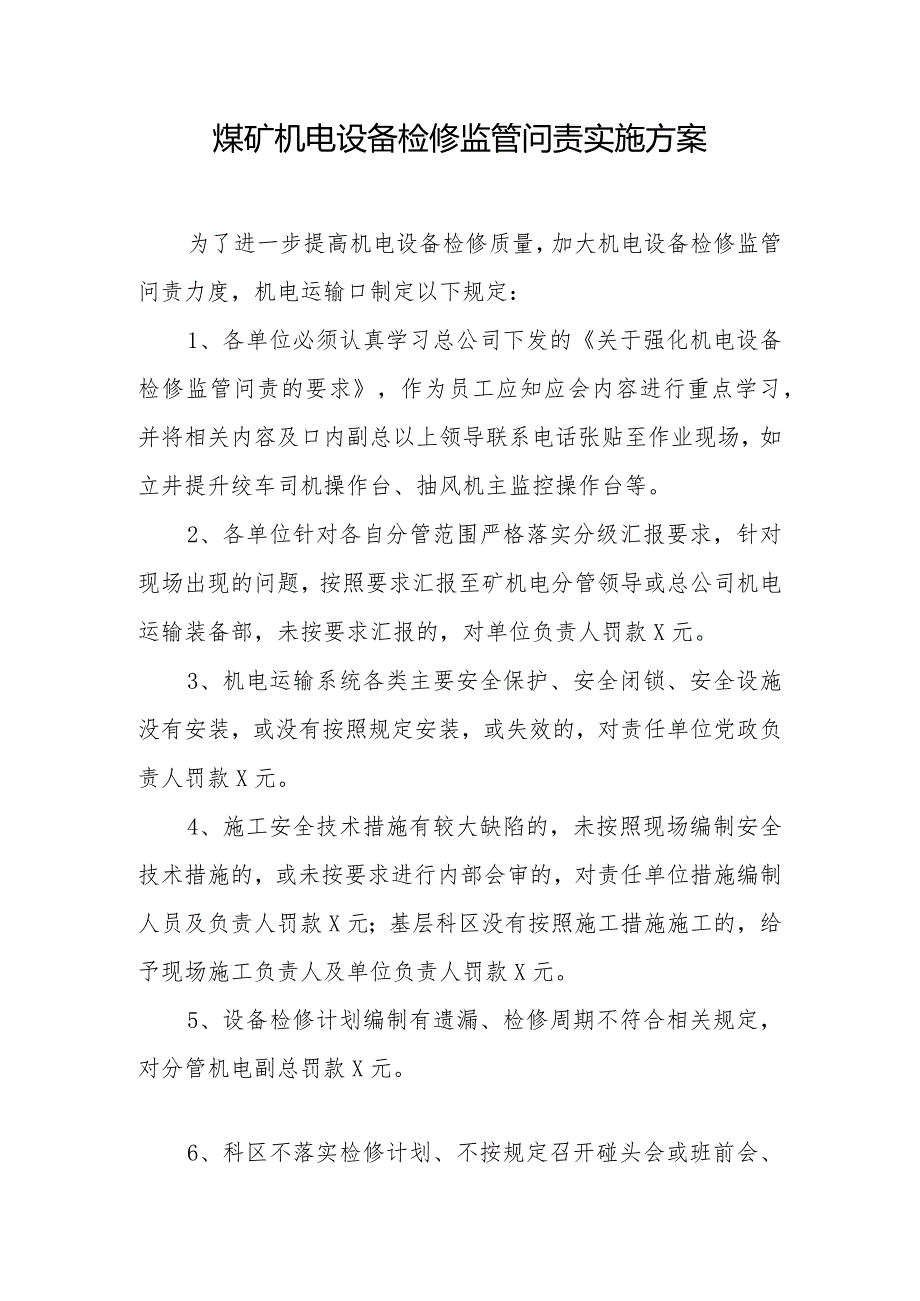 煤矿机电设备检修监管问责实施方案
为了进一步提高机电设备检修质量，加大机电设备检修监管
问责力度，机电运输口制定以下规定：
1、各单位必须认真学习总公司下发的《关于强化机电设备
检修监管问责的要求》，作为员工应知应会内容进行重点学习，
并将相关内容及口内副总以上领导联系电话张贴至作业现场，如
立井提升绞车司机操作台、抽风机主监控操作台等。
2、各单位针对各自分管范围严格落实分级汇报要求，针对
现场出现的问题，按照要求汇报至矿机电分管领导或总公司机电
运输装备部，未按要求汇报的，对单位负责人罚款X元。
3、机电运输系统各类主要安全保护、安全闭锁、安全设施
没有安装，或没有按照规定安装，或失效的，对责任单位党政负
责人罚款X元。
4、施工安全技术措施有较大缺陷的，未按照现场编制安全
技术措施的，或未按要求进行内部会审的，对责任单位措施编制
人员及负责人罚款X元；基层科区没有按照施工措施施工的，给
予现场施工负责人及单位负责人罚款X元。
5、设备检修计划编制有遗漏、检修周期不符合相关规定，
对分管机电副总罚款X元。
6、科区不落实检修计划、不按规定召开碰头会或班前会、